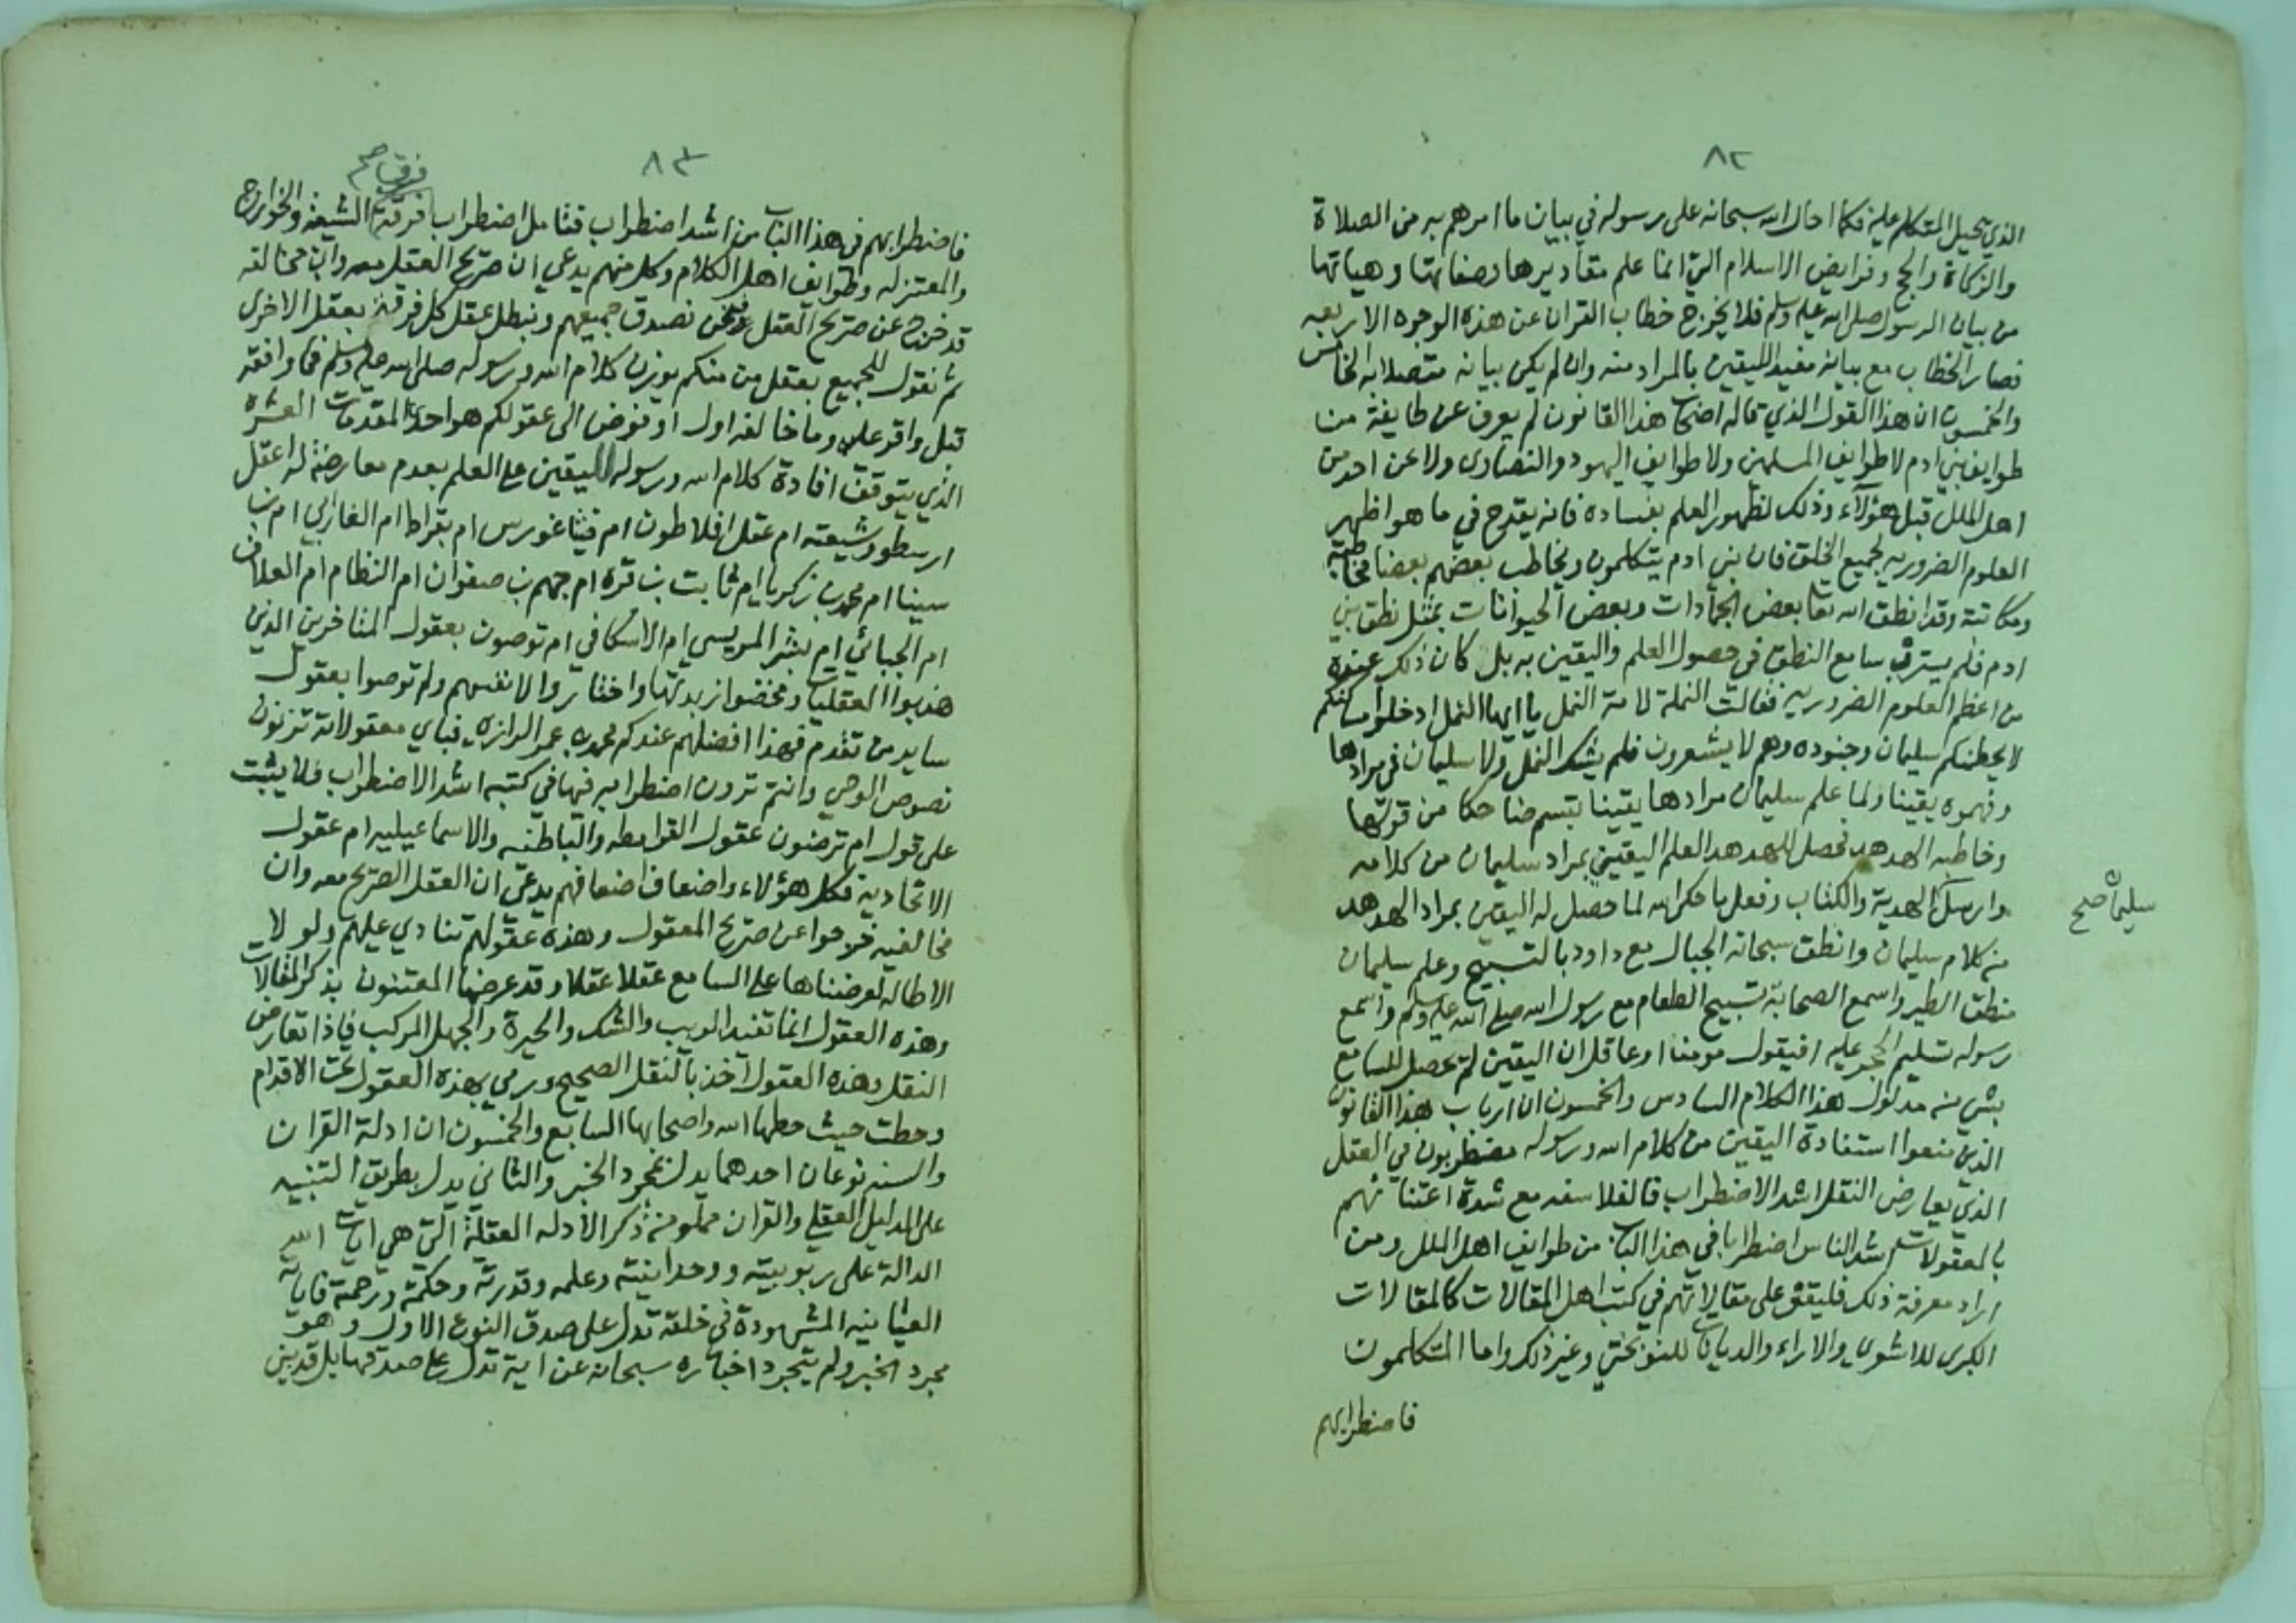 ٨٢
الذي يحيل المتكلم عليه فكما احال الله سبحانه على رسوله في بيان ما امرهم به من الصلاة
والزكاة والحج وفرايض الاسلام التي انما علم مقاديرها وصفاتها وهياتها
من بيان الرسول صلى الله عليه وسلم فلا يخرج خطاب القران عن هذه الوجوه الاربعه
فصار الخطاب مع بيانه مفيد اليقين بالمراد منه وان لم يكن بيانه متصلا به الخامس
والخمسون ان هذا القول الذي قاله اصحاب هذا القانون لم يعرف عن طايفة من
طوايف بني ادم لا طوايف المسلمين ولا طوايف اليهود والنصارى ولا عن احد من
اهل الملل قبل هؤلآء وذلك لظهور العلم بفساده فانه يقدح في ما هو اظهر
العلوم الضروريه لجميع الخلق فان بني ادم يتكلمون ويخاطب بعضهم بعضا مخاطبة
ومكاتبة وقد انطق الله تعا بعض الجمادات وبعض الحيوانات بمثل نطق بني
ادم فلم يسترب سامع النطق في حصول العلم واليقين به بل كان ذلك عنده
من اعظم العلوم الضروريه فقالت النملة لامة النمل يا ايها النمل ادخلوا مساكنكم
لا يحطمنكم سليمان وجنوده وهم لا يشعرون فلم يشك النمل ولا سليمان في مرادها
وفهموه يقينا ولما علم سليمان مرادها يقينا تبسم ضاحكا من قولها
وخاطبه الهدهد فحصل للهدهد العلم اليقيني بمراد سليمان من كلامه
وارسل الهدية والكتاب وفعل ما حكى الله لما حصل له اليقين بمراد الهدهد
سليمان صح
من كلام سليمان وانطق سبحانه الجبال مع داود بالتسبيح وعلم سليمان
منطق الطير واسمع الصحابة تسبيح الطعام مع رسول الله صلى الله عليه وسلم واسمع
رسوله تسليم الحجر عليه افيقول مومنا او عاقل ان اليقين لم يحصل للسامع
بشي من مدلول هذا الكلام السادس والخمسون ان ارباب هذا القانون
الذي منعوا استفادة اليقين من كلام الله ورسوله مضطربون في العقل
الذي يعارض النقل اشد الاضطراب فالفلاسفه مع شدة اعتنائهم
بالمعقولات اشد الناس اضطرابا في هذا الباب من طوايف اهل الملل ومن
اراد معرفة ذلك فليقف على مقالاتهم في كتب اهل المقالات كالمقالات
الكبرى للاشعري والاراء والديانات للنوبختي وغير ذلك واما المتكلمون
فاضطرابهم
٨٣
فرقتا صح
فاضطرابهم في هذا الباب من اشد اضطراب فتامل اضطراب فرقة الشيعة والخوارج
والمعتزله وطوايف اهل الكلام وكل منهم يدعي ان صريح العقل معه وان مخالفه
قد خرج عن صريح العقل ونحن نصدق جميعهم ونبطل عقل كل فرقة بعقل الاخرى
ثم نقول للجميع بعقل من منكم يوزن كلام الله ورسوله صلى الله عليه وسلم فما وافقه
قبل واقر عليه وما خالفه اول او فوض الى عقولكم هو احد المقدمات العشرة
الذي يتوقف افادة كلام الله ورسوله لليقين على العلم بعدم معارضته له اعقل
ارسطو وشيعته ام عقل افلاطون ام فيثاغورس ام بقراط ام الفارابي ام بن
سينا ام محمد بن زكريا ام ثابت بن قره ام جهم بن صفوان ام النظام ام العلاف
ام الجبائي ام بشر المريسي ام الاسكافي ام توصون بعقول المتاخرين الذين
هذبوا العقليات ومخضوا زبدتها واختاروا لانفسهم ولم توصوا بعقول
ساير من تقدم فهذا افضلهم عندكم محمد بن عمر الرازي فباي معقولاته تزنون
نصوص الوحي وانتم ترون اضطرابه فيها في كتبه اشد الاضطراب فلا يثبت
على قول ام ترضون عقول القرامطه والباطنيه والاسماعيليه ام عقول
الاتحادية فكل هؤلاء واضعاف اضعافهم يدعي ان العقل الصريح معه وان
مخالفيه خرجوا عن صريح المعقول وهذه عقولهم تنادي عليهم ولولا
الاطالة لعرضناها على السامع عقلا عقلا وقد عرضها المعتنون بذكر المقالات
وهذه العقول انما تفيد الريب والشك والحيرة والجهل المركب فاذا تعارض
النقل وهذه العقول اخذ بالنقل الصحيح ورمي بهذه العقول تحت الاقدام
وحطت حيث حطها الله واصحابها السابع والخمسون ان ادلة القران
والسنه نوعان احدهما يدل بمجرد الخبر والثاني يدل بطريق التنبيه
على الدليل العقلي والقران مملو من ذكر الادله العقلية التي هي ايات الله
الدالة على ربوبيته ووحدانيته وعلمه وقدرته وحكمته ورحمته فاياته
العيانيه المشهودة في خلقه تدل على صدق النوع الاول وهو
مجرد الخبر ولم يتجرد اخباره سبحانه عن اية تدل على صدقها بل قد بين